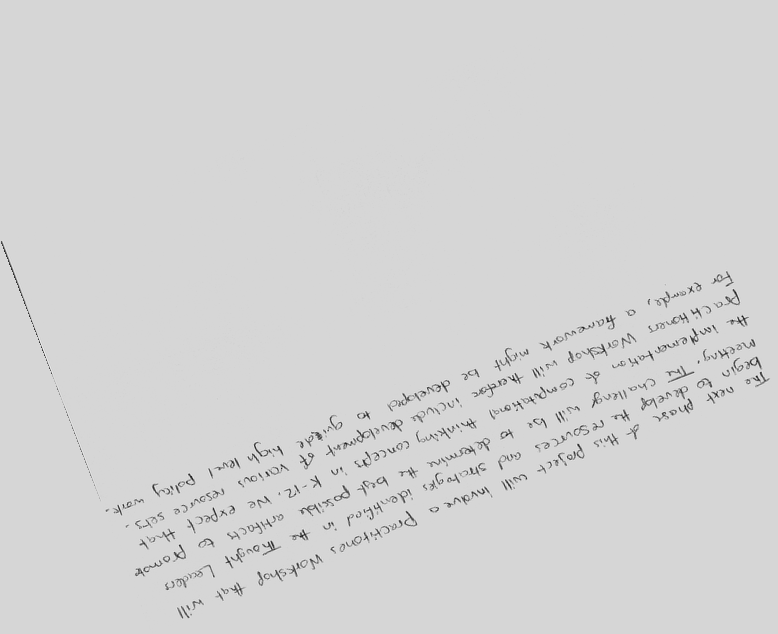 The next phase of this project will involve a Practitones Workshop that will
begin to develop the resources and strategies identified in the Thought Leaders
meeting. The challeng will be to determine the best possible artifacts to promote
the implementation of computational thinking concepts in K-12. We expect that
Practitioners Workshop will therefor include development of various resource sets.
For example, a framework might be developed to guide high level policy work.